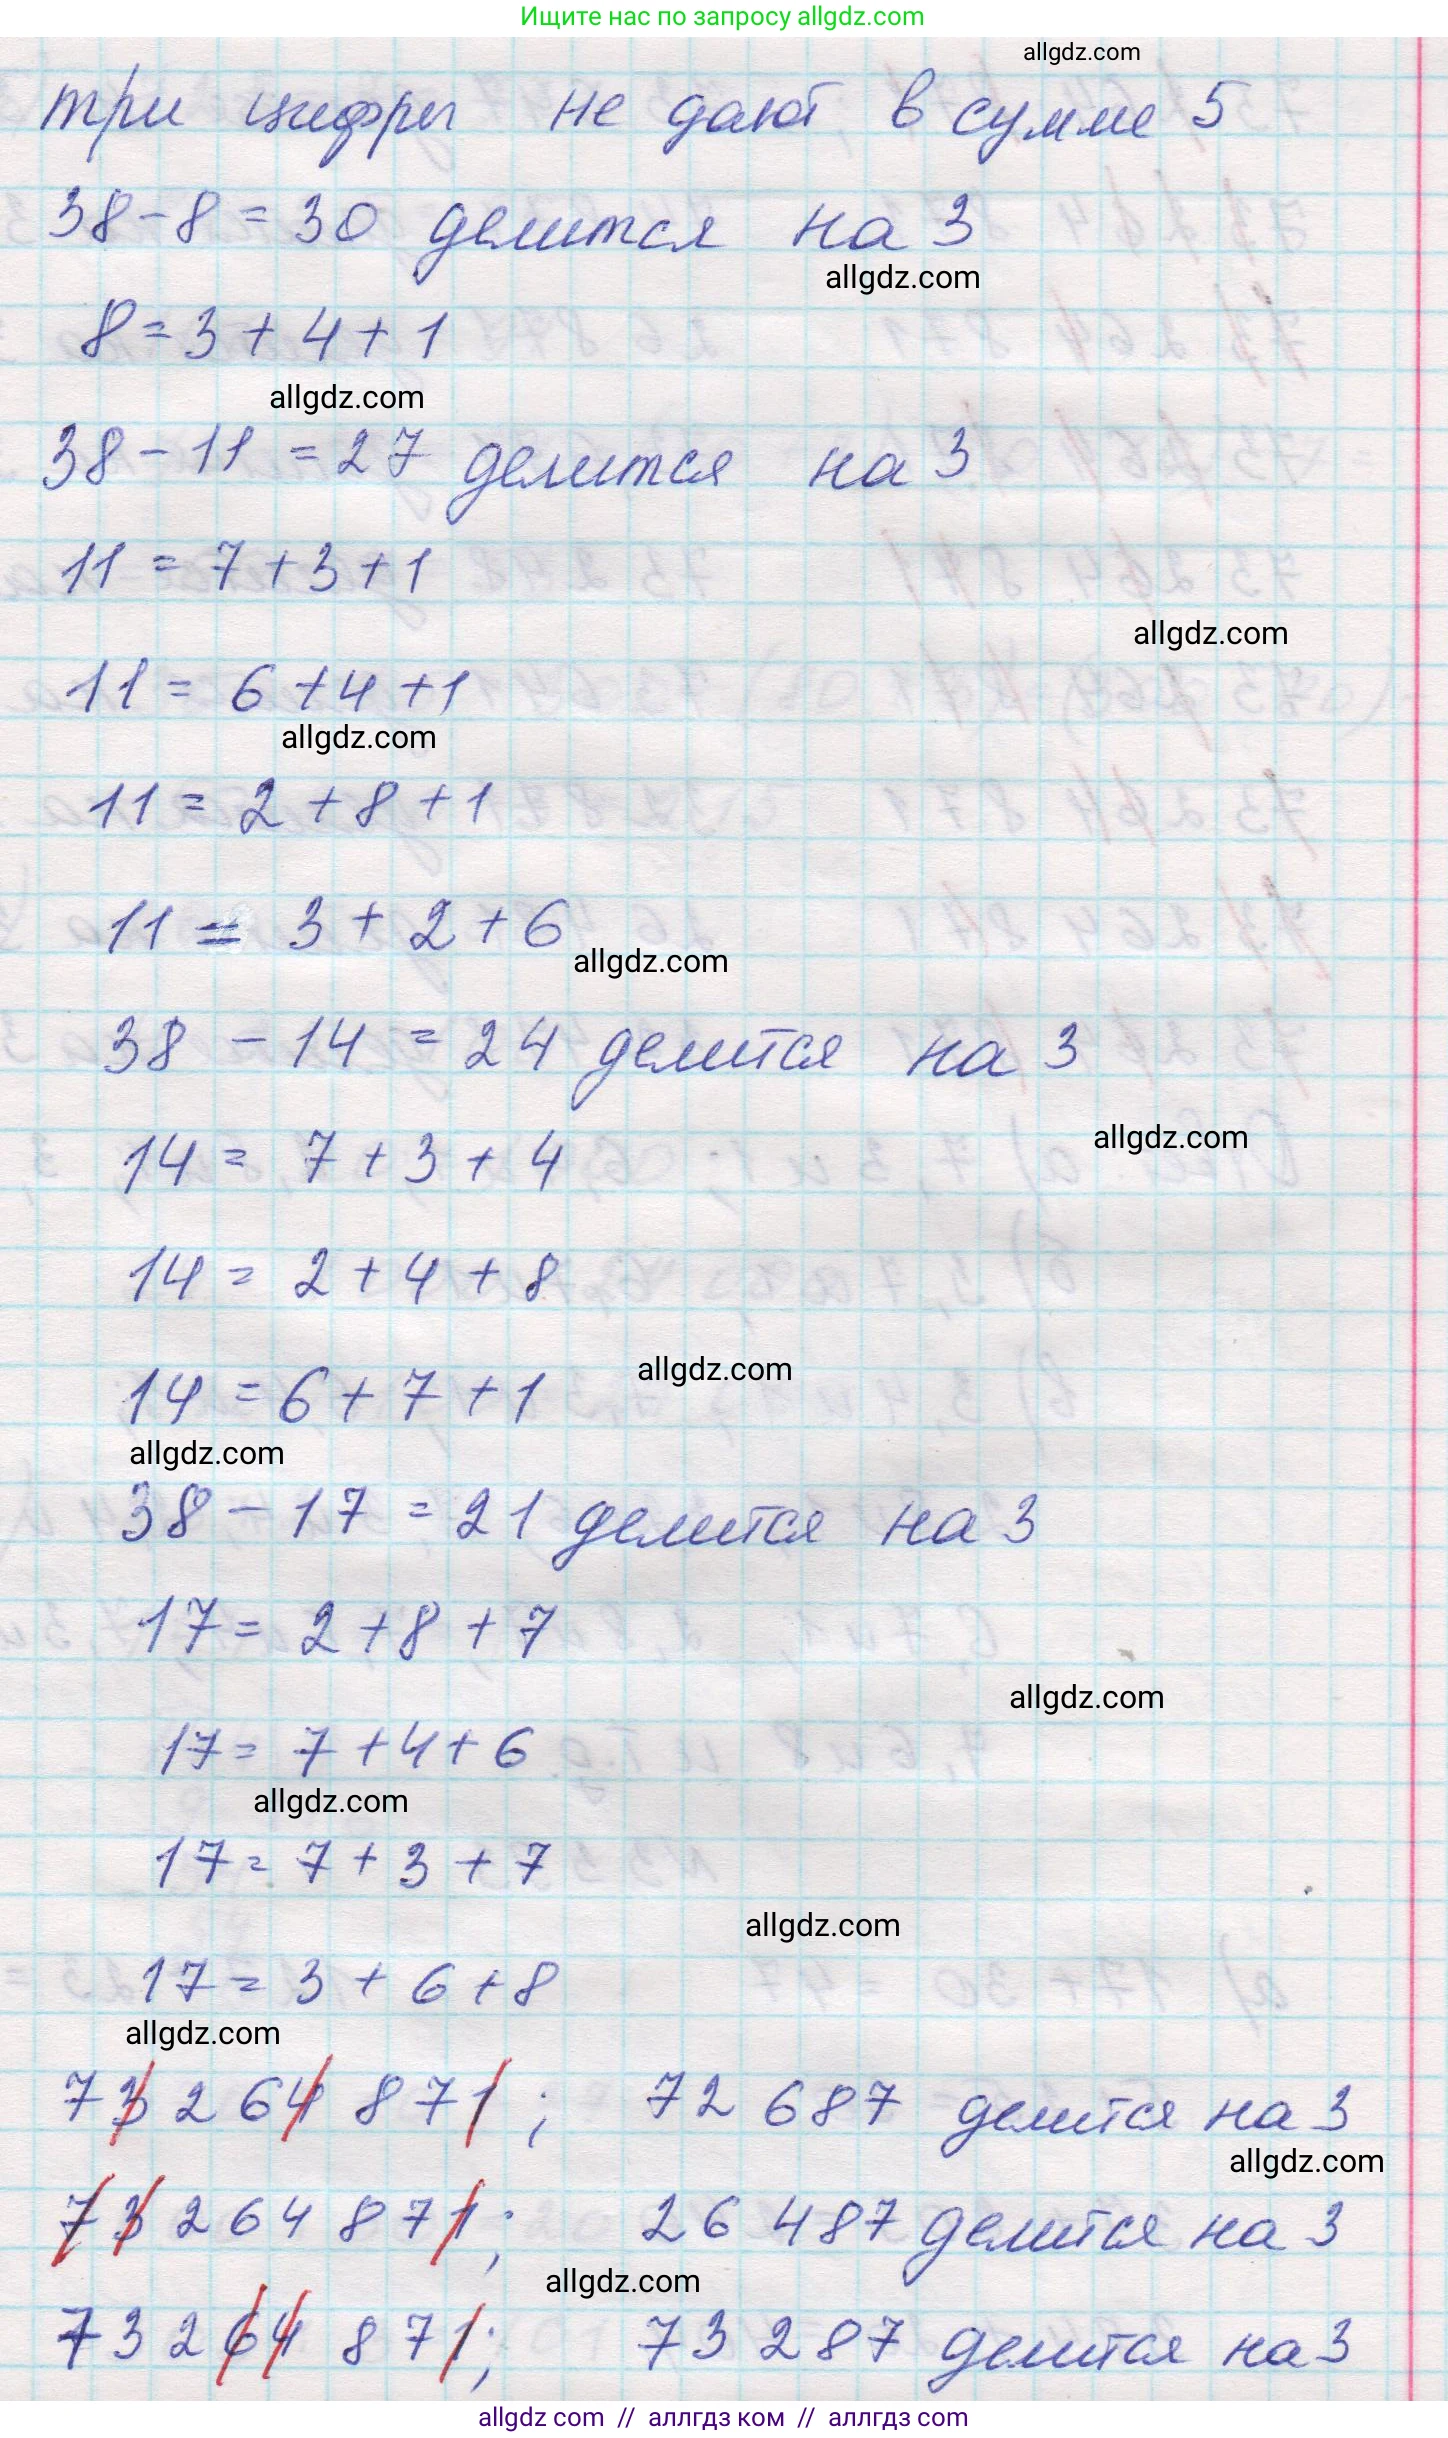 Ищите нас по запросу allgdz.com
allgdz.com
три цифры не дают в сумме 5
38 - 8 = 30 делится на 3
allgdz.com
8 = 3 + 4 + 1
allgdz.com
38 - 11 = 27 делится на 3
11 = 7 + 3 + 1
allgdz.com
11 = 6 + 4 + 1
allgdz.com
11 = 2 + 8 + 1
11 = 3 + 2 + 6
allgdz.com
38 - 14 = 24 делится на 3
allgdz.com
14 = 7 + 3 + 4
14 = 2 + 4 + 8
allgdz.com
14 = 6 + 7 + 1
allgdz.com
38 - 17 = 21 делится на 3
17 = 2 + 8 + 7
allgdz.com
17 = 7 + 4 + 6
allgdz.com
17 = 7 + 3 + 7
allgdz.com
17 = 3 + 6 + 8
allgdz.com
73 264 871 ; 72 687 делится на 3
allgdz.com
73 264 871 ; 26 487 делится на 3
allgdz.com
73 264 871 ; 73 287 делится на 3
allgdz com // аллгдз ком // аллгдз com